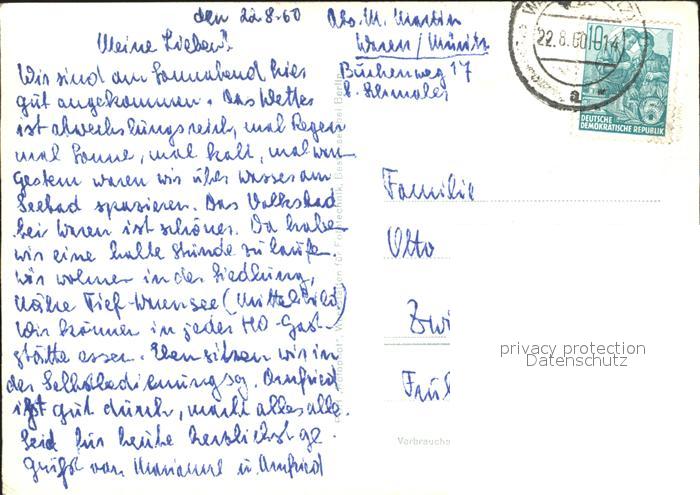 den 22.8.60
Meine Lieben!
Wir sind am Sonnabend hier
gut angekommen. Das Wetter
ist abwechslungsreich, mal Regen
mal Sonne, mal kalt, mal warm
Gestern waren wir über Wasser am
Seebad spazieren. Das Volksbad
bei Waren ist schöner. Da haben
wir eine halbe Stunde zu laufen.
Wir wohnen in der Siedlung,
Nähe Tief-Warensee (Mittelbild)
Wir können in jeder HO-Gast-
stätte essen. Eben sitzen wir in
der Selbstbedienungsg. Arnfried
ißt gut durch, macht alles alle.
Seid für heute herzlichst ge-
grüßt von Marianne u. Arnfried
Abs. M. Martin
Waren/Müritz
Buchenweg 17
b.
22.8.60
a
10+5
DEUTSCHE
DEMOKRATISCHE REPUBLIK
Familie
Otto
Zwi
privacy protection
Datenschutz
Verbrauche